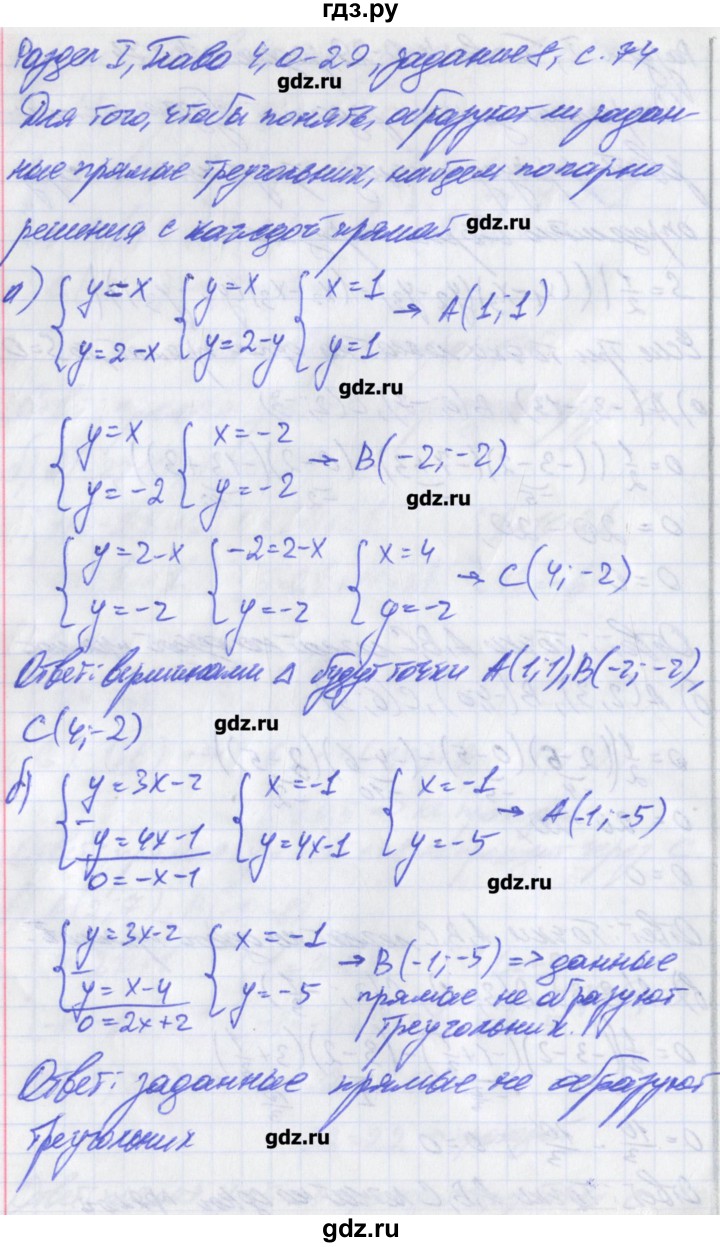 гдз.ру
Раздел I, Глава 4, О-29, задание 8, с. 74
gdz.ru
Для того, чтобы понять, образуют ли задан-
ные прямые треугольник, найдем попарно
решения с каждой прямой
gdz.ru
а) { y=x { y=x { x=1
{ y=2-x { y=2-y { y=1 → A(1; 1)
gdz.ru
{ y=x { x=-2
{ y=-2 { y=-2 → B(-2; -2)
gdz.ru
{ y=2-x { -2=2-x { x=4
{ y=-2 { y=-2 { y=-2 → C(4; -2)
Ответ: вершинами Δ будут точки A(1;1), B(-2; -2),
C(4;-2)
gdz.ru
б) { y=3x-2 { x=-1 { x=-1
{ - y=4x-1 { y=4x-1 { y=-5 → A(-1; -5)
0=-x-1
gdz.ru
{ y=3x-2 { x=-1
{ - y=x-4 { y=-5 → B(-1;-5) => данные
0=2x+2
прямые не образуют
треугольник.
Ответ: заданные прямые не образуют
треугольник
gdz.ru
gdz.ru